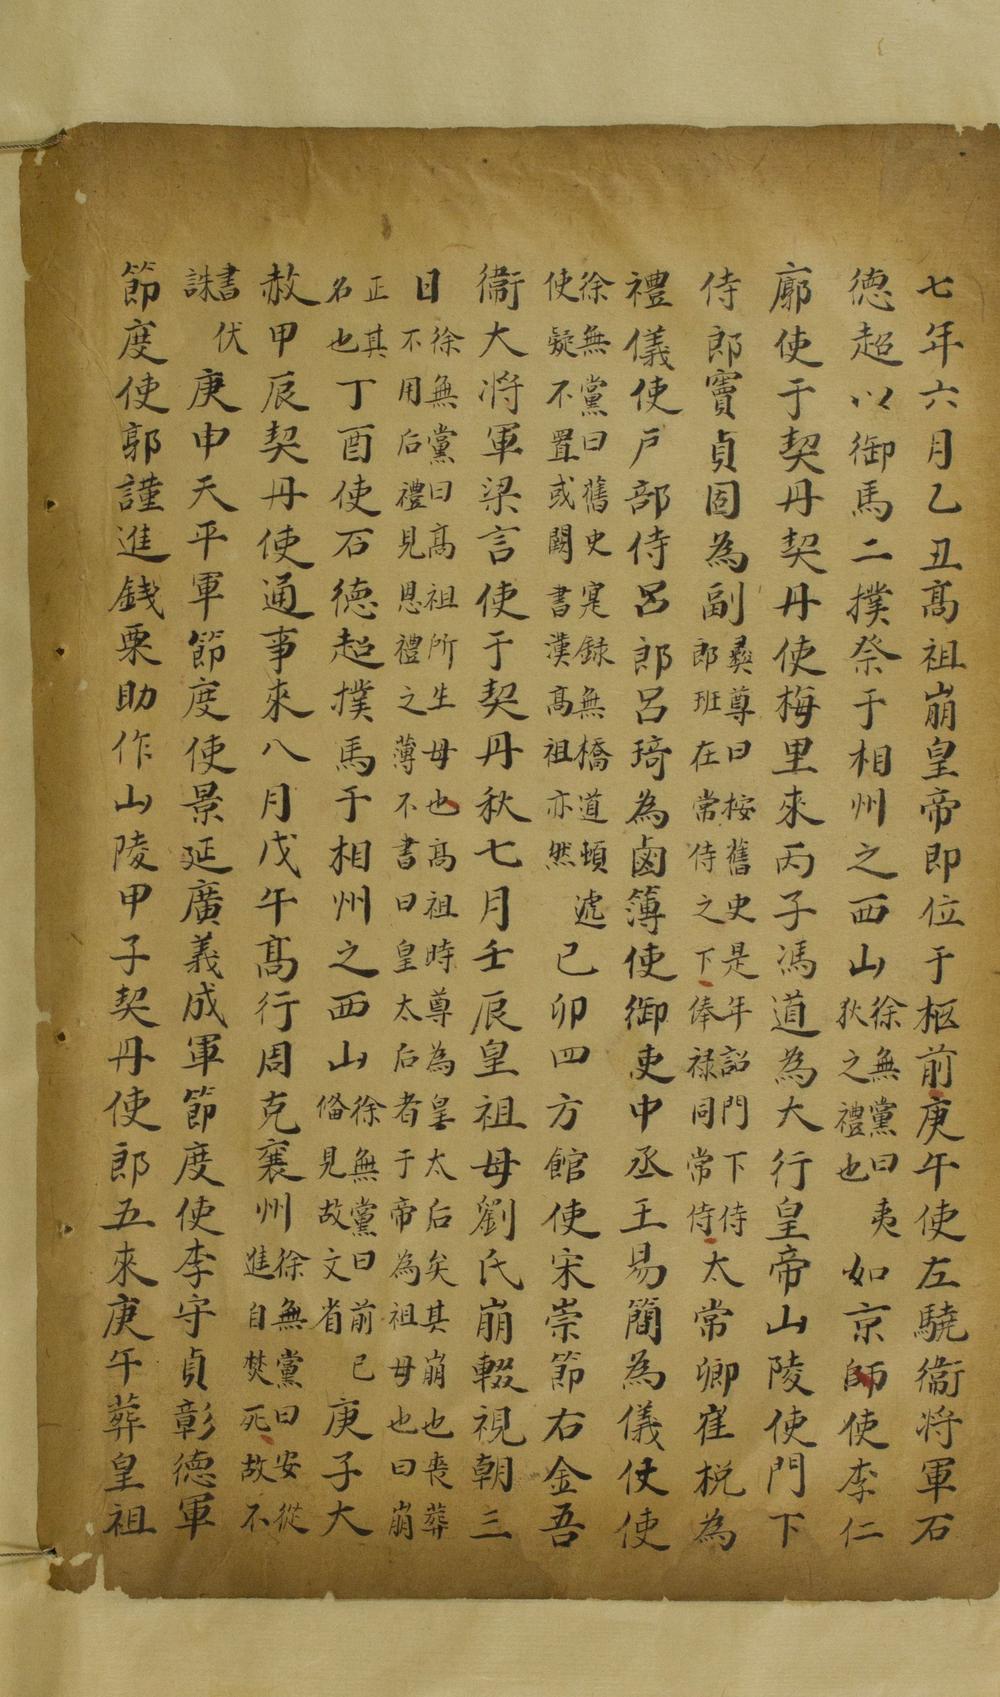 七年六月乙丑髙祖崩皇帝即位于柩前庚午使左驍衞将軍石
德超以御馬二撲祭于相州之西山徐無黨曰夷狄之禮也如京師使李仁
廓使于契丹契丹使梅里來丙子馮道為大行皇帝山陵使門下
侍郎竇貞固為副彛尊曰桉舊史是年詔門下侍郎班在常侍之下俸禄同常侍太常卿崔梲為
禮儀使户部侍呂郎呂琦為鹵簿使御吏中丞王易簡為儀仗使
徐無黨曰舊史寔録無橋道頓遞使疑不置或闕書漢髙祖亦然已卯四方館使宋崇節右金吾
衞大将軍梁言使于契丹秋七月壬辰皇祖母劉氏崩輟視朝三
日徐無黨曰髙祖所生母也髙祖時尊為皇太后矣其崩也喪葬不用后禮見恩禮之薄不書曰皇太后者于帝為祖母也曰崩
正其名也丁酉使石德超撲馬于相州之西山徐無黨曰前已偹見故文省庚子大
赦甲辰契丹使通事來八月戊午髙行周克襄州徐無黨曰安從進自焚死故不
書伏誅庚申天平軍節度使景延廣義成軍節度使李守貞彰德軍
節度使郭謹進錢粟助作山陵甲子契丹使郎五來庚午葬皇祖